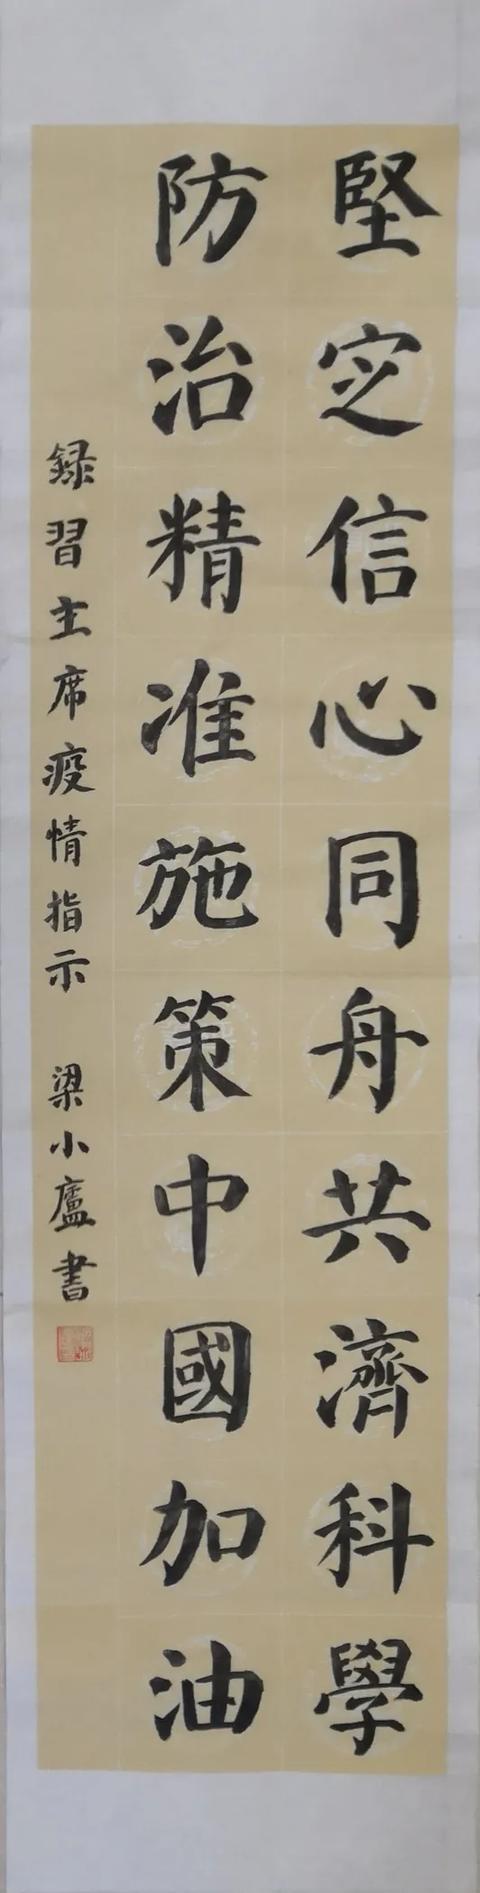 堅定信心同舟共濟科學
防治精准施策中國加油
録習主席疫情指示 梁小廬書